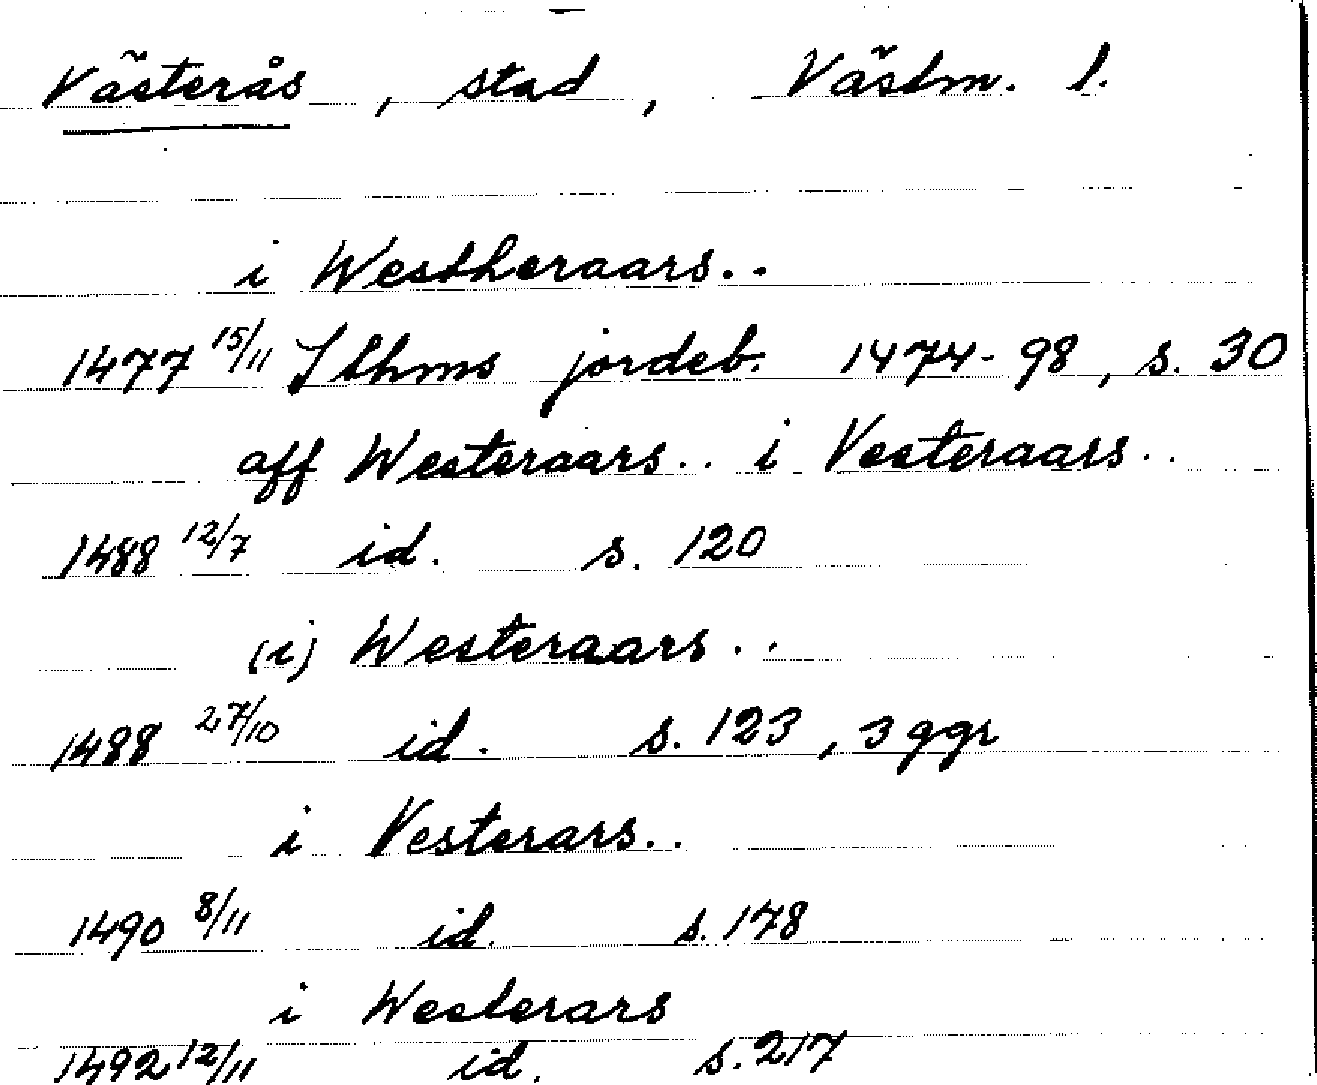 Västerås, stad, Västm. l.
i Westheraars..
1477 15/11 Sthms jordeb. 1474-98, s. 30
aff Westeraars.. i Vesteraars..
1488 12/7 id. s. 120
(i) Westeraars..
1488 27/10 id. s. 123, 3 ggr
i Vesterars..
1490 8/11 id. s. 178
i Westerars
1492 12/11 id. s. 217